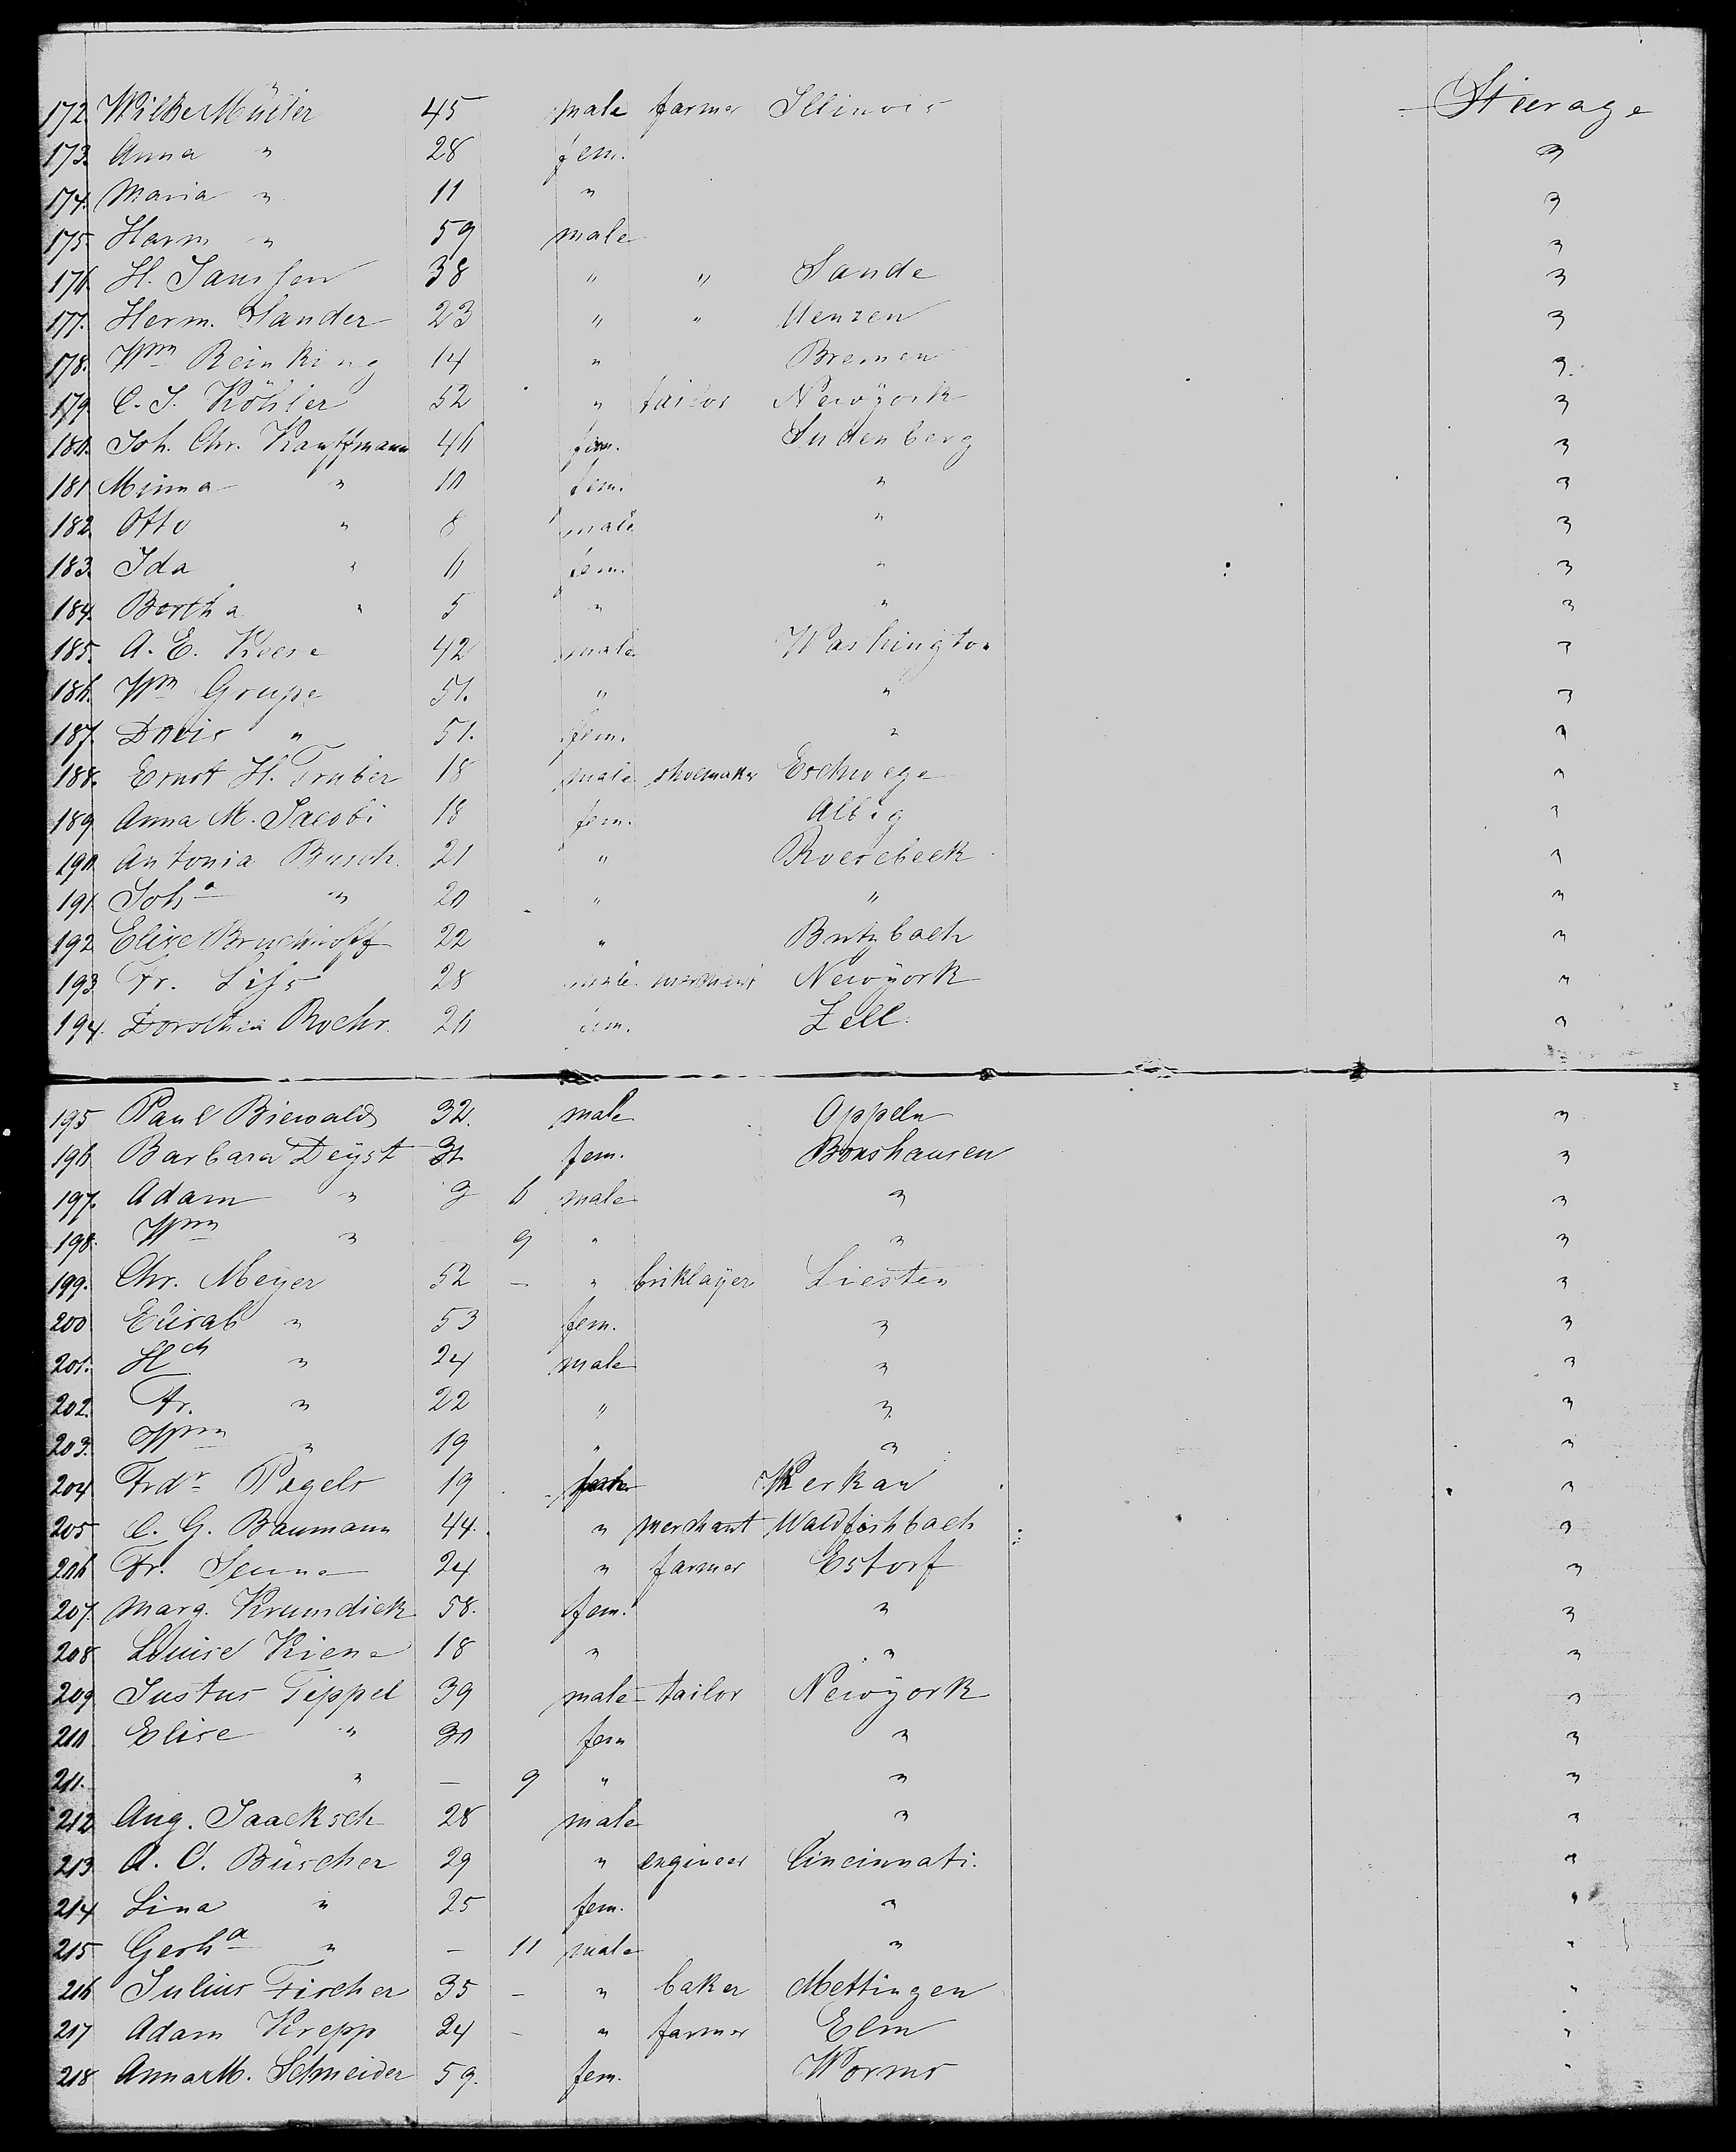 172 Wilke Müller 45 male farmer Illinois Steerage
173. Anna " 28 fem. "
174. Maria " 11 " "
175 Harm " 59 male "
176. H. Janssen 38 " " Sande "
177. Herm. Sander 23 " " "
178. Wm Reinking 14 " Bremen "
179. C. J. Köhler 52 " tailor Newyork "
180. Joh. Chr. Kauffmann 46 fem. Sudenberg "
181 Minna " 10 fem. " "
182. Otto " 8 male " "
183. Ida " 6 fem. " "
184. Bertha " 5 " " "
185. A. E. Keese 42 male Washington "
186. Wm Grupe 51. " " "
187. Doris " 51. fem. " "
188. Ernst H. Truber 18 male shoemaker Eschwege "
189 Anna M. Jacobi 18 fem. Albig "
190 Antonia Busch. 21 " Roesebeck "
191. Joha " 20 " " "
192 Elise Bruckhoff 22 " Butzbach "
193 Fr. Liss 28 male merchant Newyork "
194. Dorothea Roehr. 26 fem. Zell. "
195 Paul Biewald 32. male Oppeln "
196 Barbara Deyst 31 fem. Bonshausen "
197. Adam " 3 6 male " "
198. Wm " 9 " " "
199. Chr. Meyer 52 — " briklayer Liesten "
200 Elisab " 53 fem. " "
201. Hch " 24 male " "
202. Fr. " 22 " " "
203. Wm " 19 " " "
204 Frdr Pegels 19 Kerkau "
205 C. G. Baumann 44. " merchant Waldfishbach "
206 Fr. 24 " farmer Estorf "
207. Marg. Krumdick 58. fem. " "
208 Louise Kiene 18 " " "
209 Justus Tippel 39 male tailor Newyork "
210 Elise " 30 fem " "
211. " — 9 " " "
212 Aug. Jaacksch 28 male " "
213 A. C. Büscher 29 " engineer Cincinnati. "
214 Lina " 25 fem. " "
215 Gerha " — 11 male " "
216 Julius Fischer 35 — " baker Mettingen "
217 Adam Krepp 24 — " farmer Elm "
218 Anna M. Schneider 59. fem. Worms "